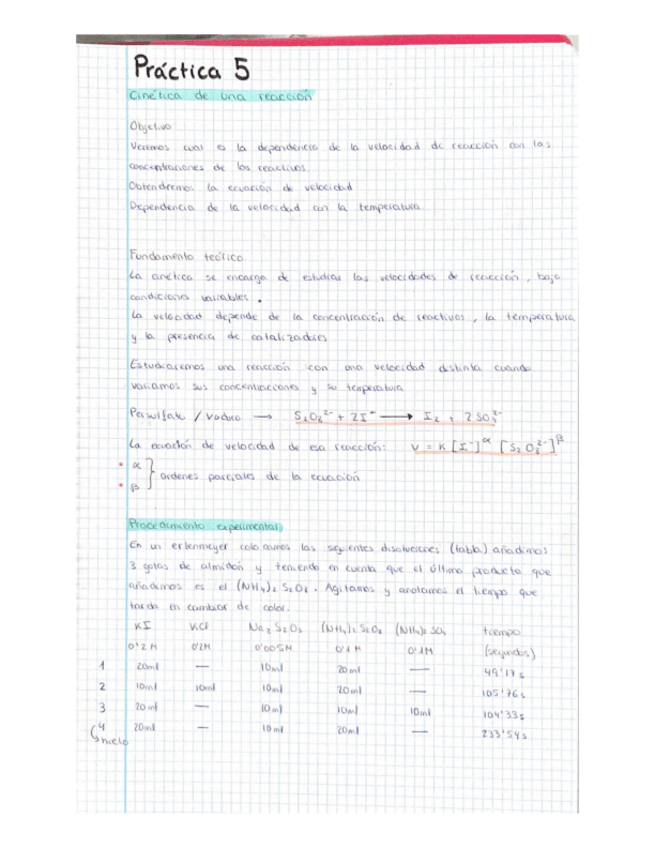 Práctica 5
Cinética de una reacción
Objetivo
Veremos cual es la dependencia de la velocidad de reacción con las
concentraciones de los reactivos.
Obtendremos la ecuación de velocidad
Dependencia de la velocidad con la temperatura
Fundamento teórico
La cinética se encarga de estudiar las velocidades de reacción, bajo
condiciones variables.
La velocidad depende de la concentración de reactivos, la temperatura
y la presencia de catalizadores
Estudiaremos una reacción con una velocidad distinta cuando
variamos sus concentraciones y su temperatura
Persulfato / yoduro → S₂O₈²⁻ + 2I⁻ → I₂ + 2SO₄²⁻
La ecuación de velocidad de esa reacción: V = K [I⁻]^α [S₂O₈²⁻]^β
• α
• β } ordenes parciales de la ecuación
Procedimiento experimental
En un erlenmeyer colocamos las siguientes disoluciones (tabla) añadimos
3 gotas de almidón y teniendo en cuenta que el último producto que
añadimos es el (NH₄)₂ S₂O₈. Agitamos y anotamos el tiempo que
tarda en cambiar de color.
KI KCl Na₂S₂O₃ (NH₄)₂S₂O₈ (NH₄)₂SO₄ tiempo
0'2M 0'2M 0'005M 0'1M 0'1M (segundos)
1 20ml — 10ml 20ml — 49'17s
2 10ml 10ml 10ml 20ml — 105'76s
3 20ml — 10ml 10ml 10ml 104'33s
4 20ml — 10ml 20ml — 233'54s
↳ hielo